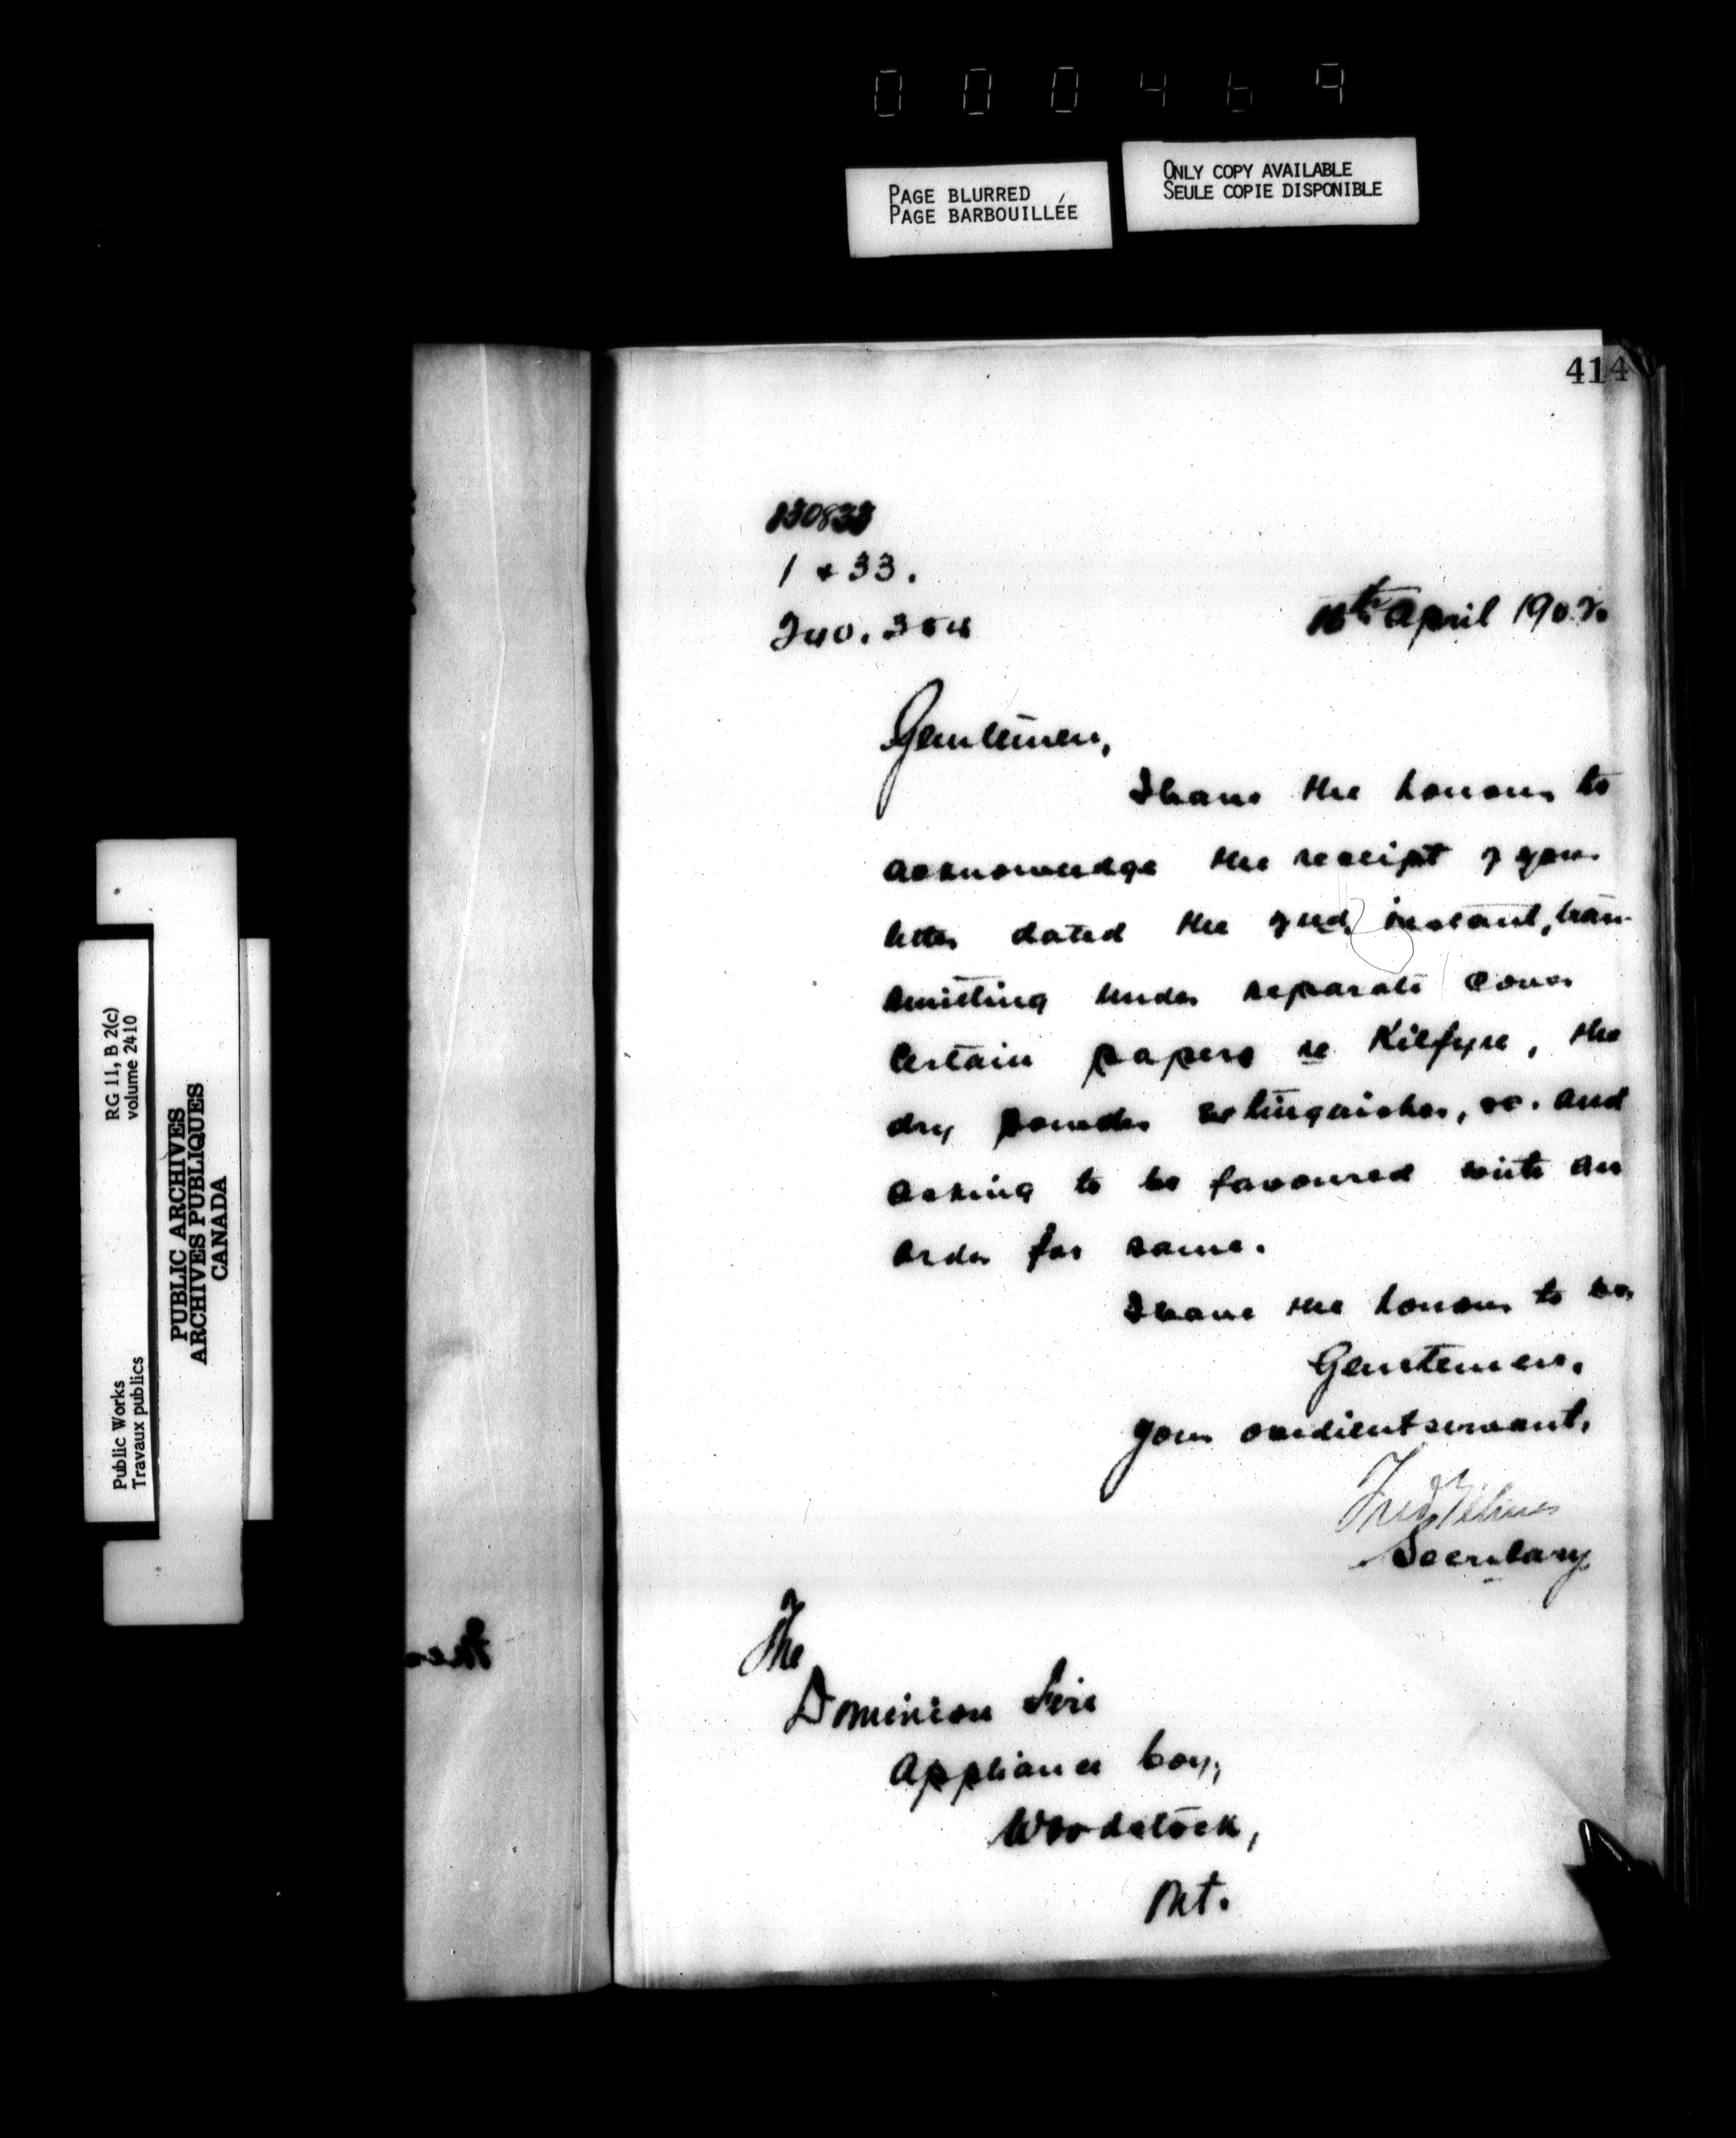 000469
PAGE BLURRED
PAGE BARBOUILLÉE
ONLY COPY AVAILABLE
SEULE COPIE DISPONIBLE
414
1 & 33.
April 1902.
Gentlemen,
I have the honour to
acknowledge the receipt of your
letter dated the 2nd instant, tran-
smitting under separate cover
certain papers re Kilfyre, the
dry powder extinguisher, &c. and
asking to be favoured with an
order for same.
I have the honour to be,
Gentlemen,
Your obedient servant,
Fred Gélinas
Secretary
The
Dominion Fire
Appliance Coy,
Woodstock,
Ont.
RG 11, B 2(c)
volume 2410
PUBLIC ARCHIVES
ARCHIVES PUBLIQUES
CANADA
Public Works
Travaux publics